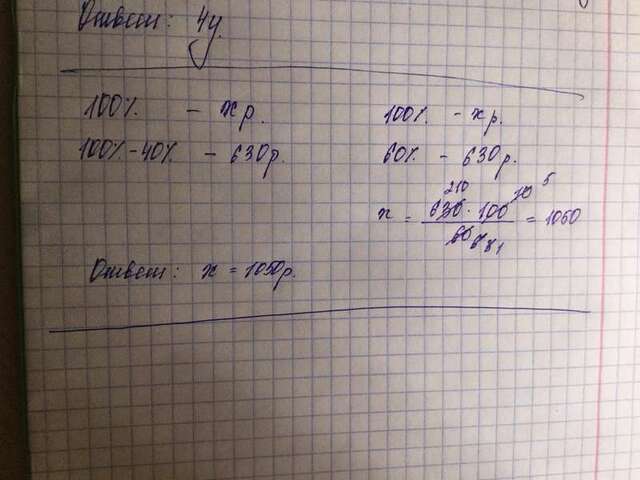 Ответ: 4 ч.
100% - x р.
100% - 40% - 630 р.
100% - x р.
60% - 630 р.
x = 630 · 100 / 60 = 1050
210 10 5
6 2 1
Ответ: x = 1050 р.